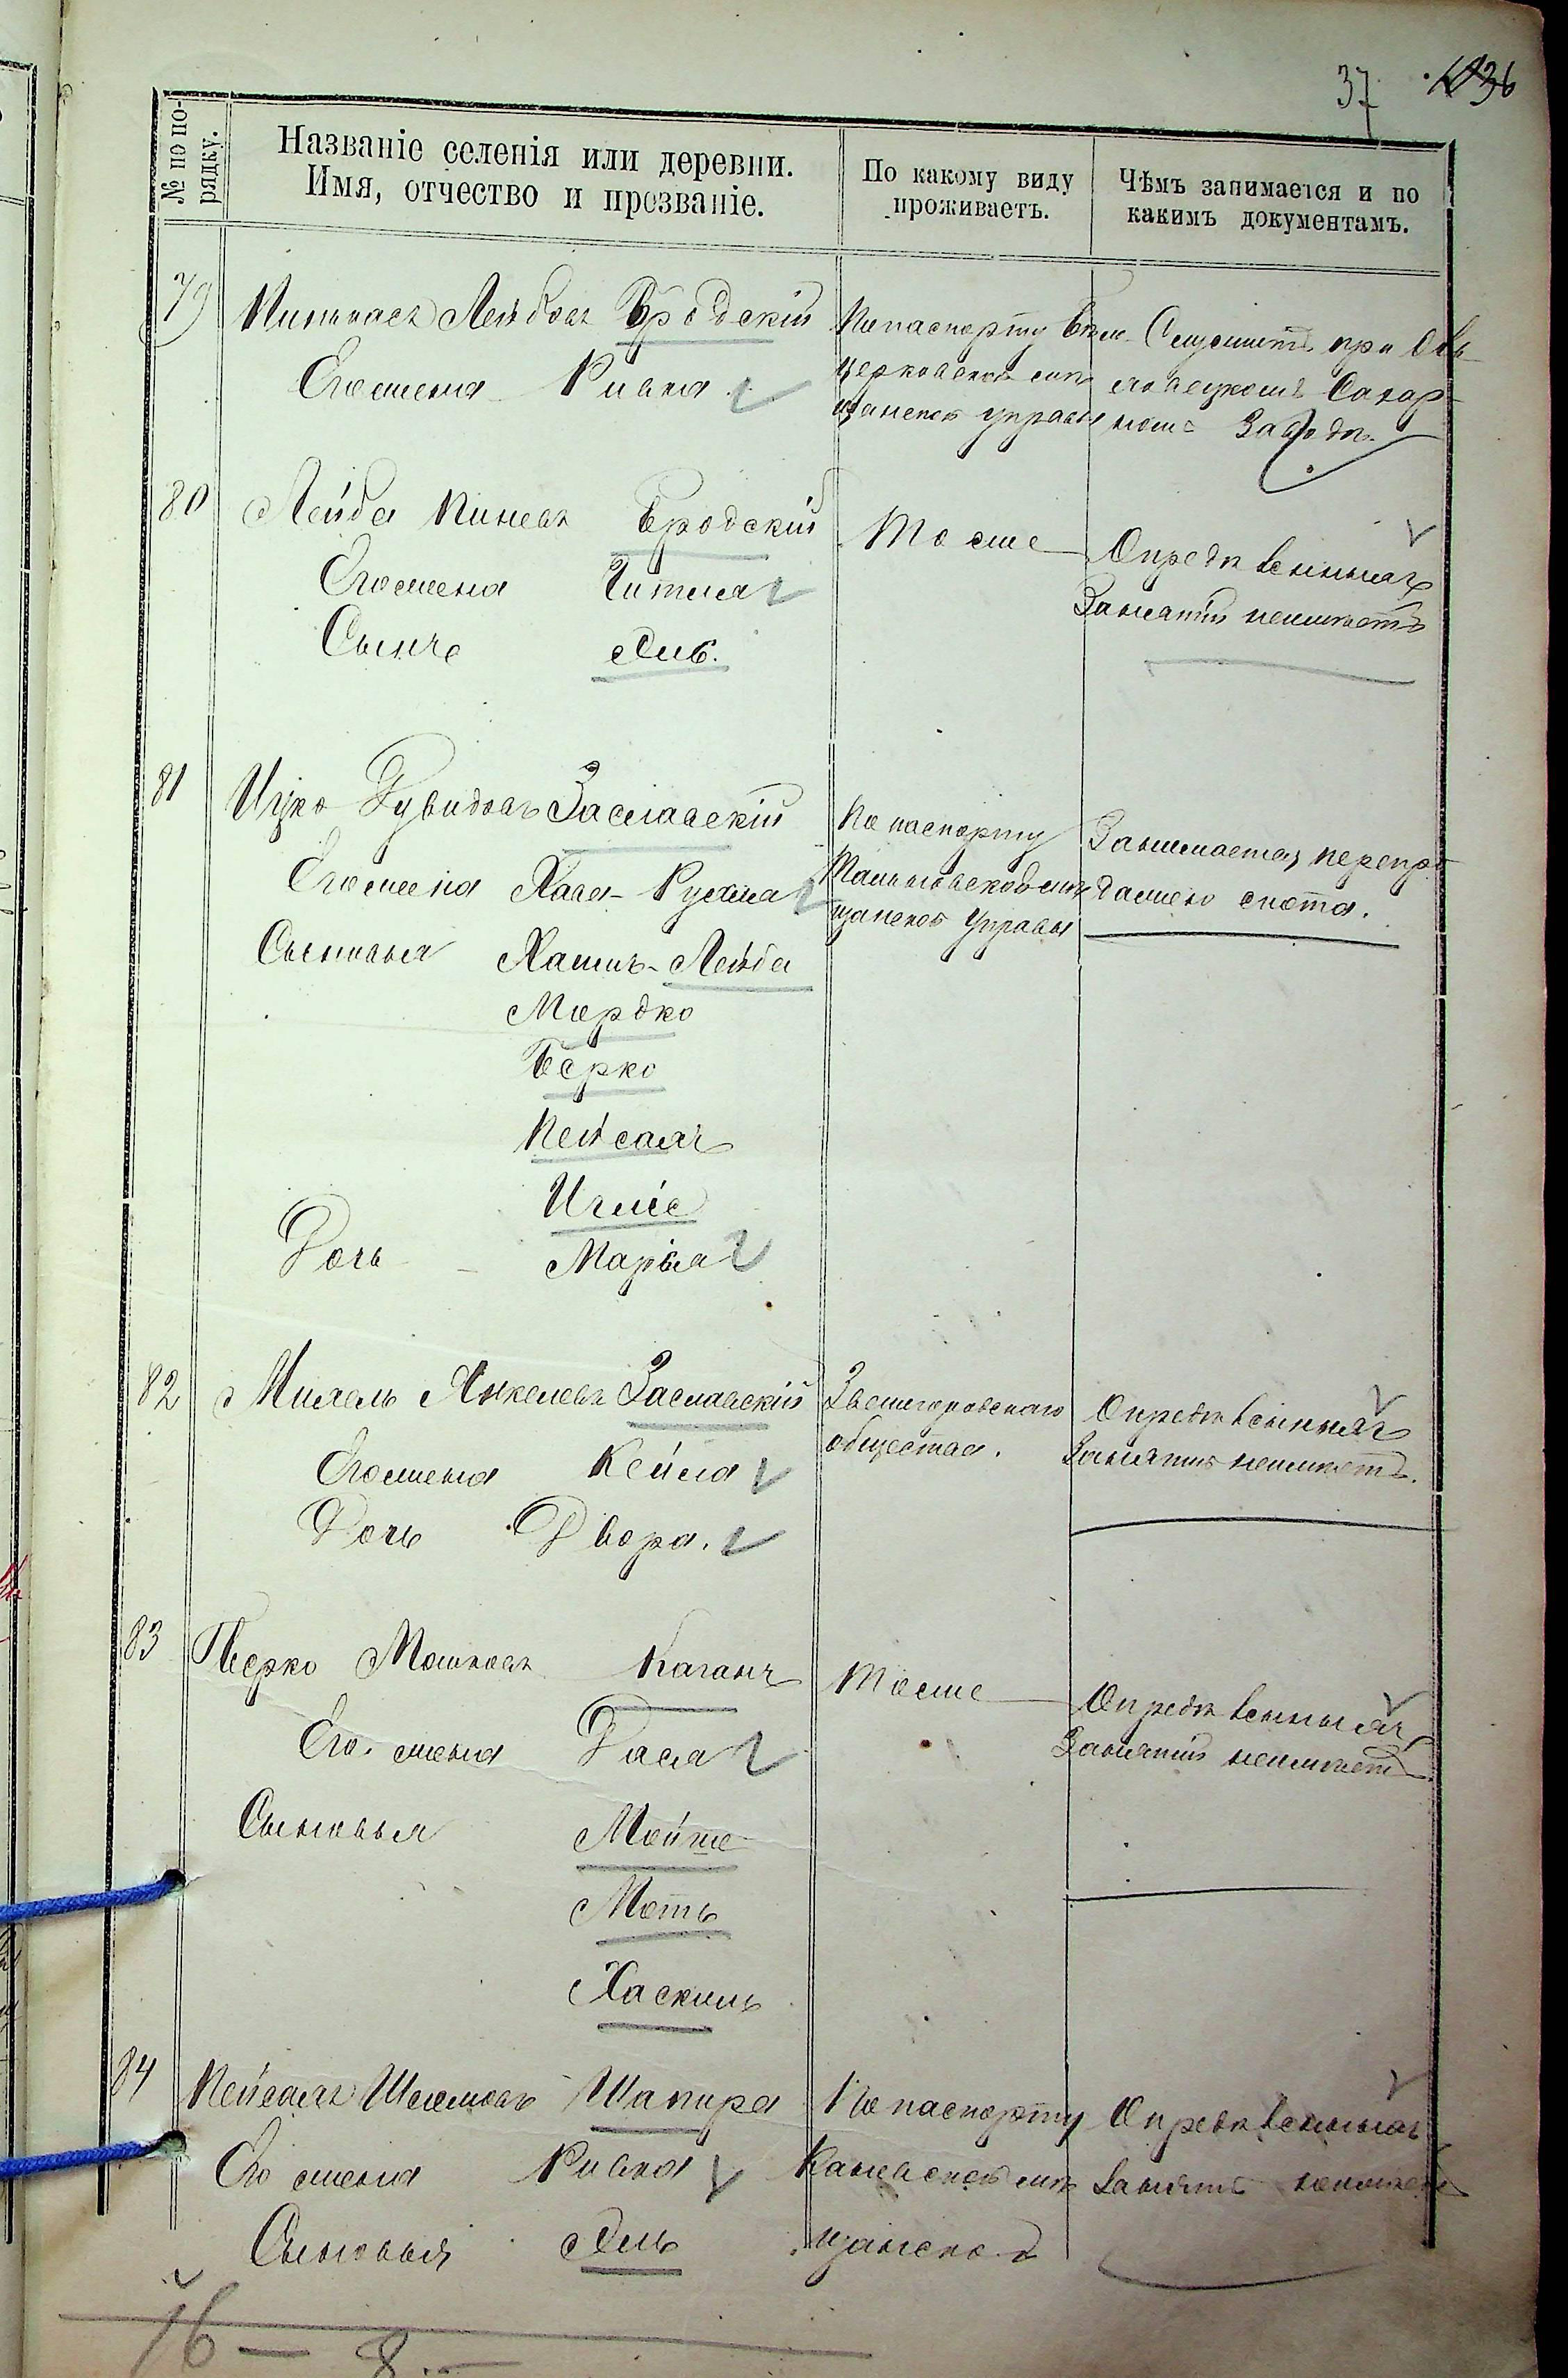 37 36
№ по по-
рядку.
Названіе селенія или деревни.
Имя, отчество и прозваніе.
По какому виду
проживаетъ.
Чѣмъ занимается и по
какимъ документамъ.
79
Пинькасъ Лейбовъ Бродскій
Его жена Ривка
По паспорту Бѣло-
церковской мѣ-
щанской управы
Служитъ при
Сахар-
номъ Заводѣ.
80
Лейба Пиневъ Бродскій
Его жена Читля
Сынъ
Тоже
Опредѣленныхъ
Занятій неимѣетъ
81
Ицко Дувидовъ Заславскій
Его жена Хая-Рухля
Сыновья Хаимъ-Лейба
Мордко
Берко
Пейсахъ
Дочь Марьяа
По паспорту
Тальновской мѣ-
щанской Управы
Занимается перепро
дажею скота.
82
Михель Янкелевъ Заславскій
Его жена Кейла
Дочь Двора.
Звенигородскаго
общества.
Опредѣленныхъ
Занятій неимѣетъ.
83
Берко Мошковъ Каганъ
Его жена Хася
Сыновья Мойше
Моть
Хаскель
Тоже
Опредѣленныхъ
Занятій неимѣетъ
84
Пейсахъ Шлемовъ Шапира
Его жена Ривка
Сыновья Эль
По паспорту
Каневской мѣ
щанской
Опредѣленныхъ
Занятій неимѣетъ
16 — 8. —